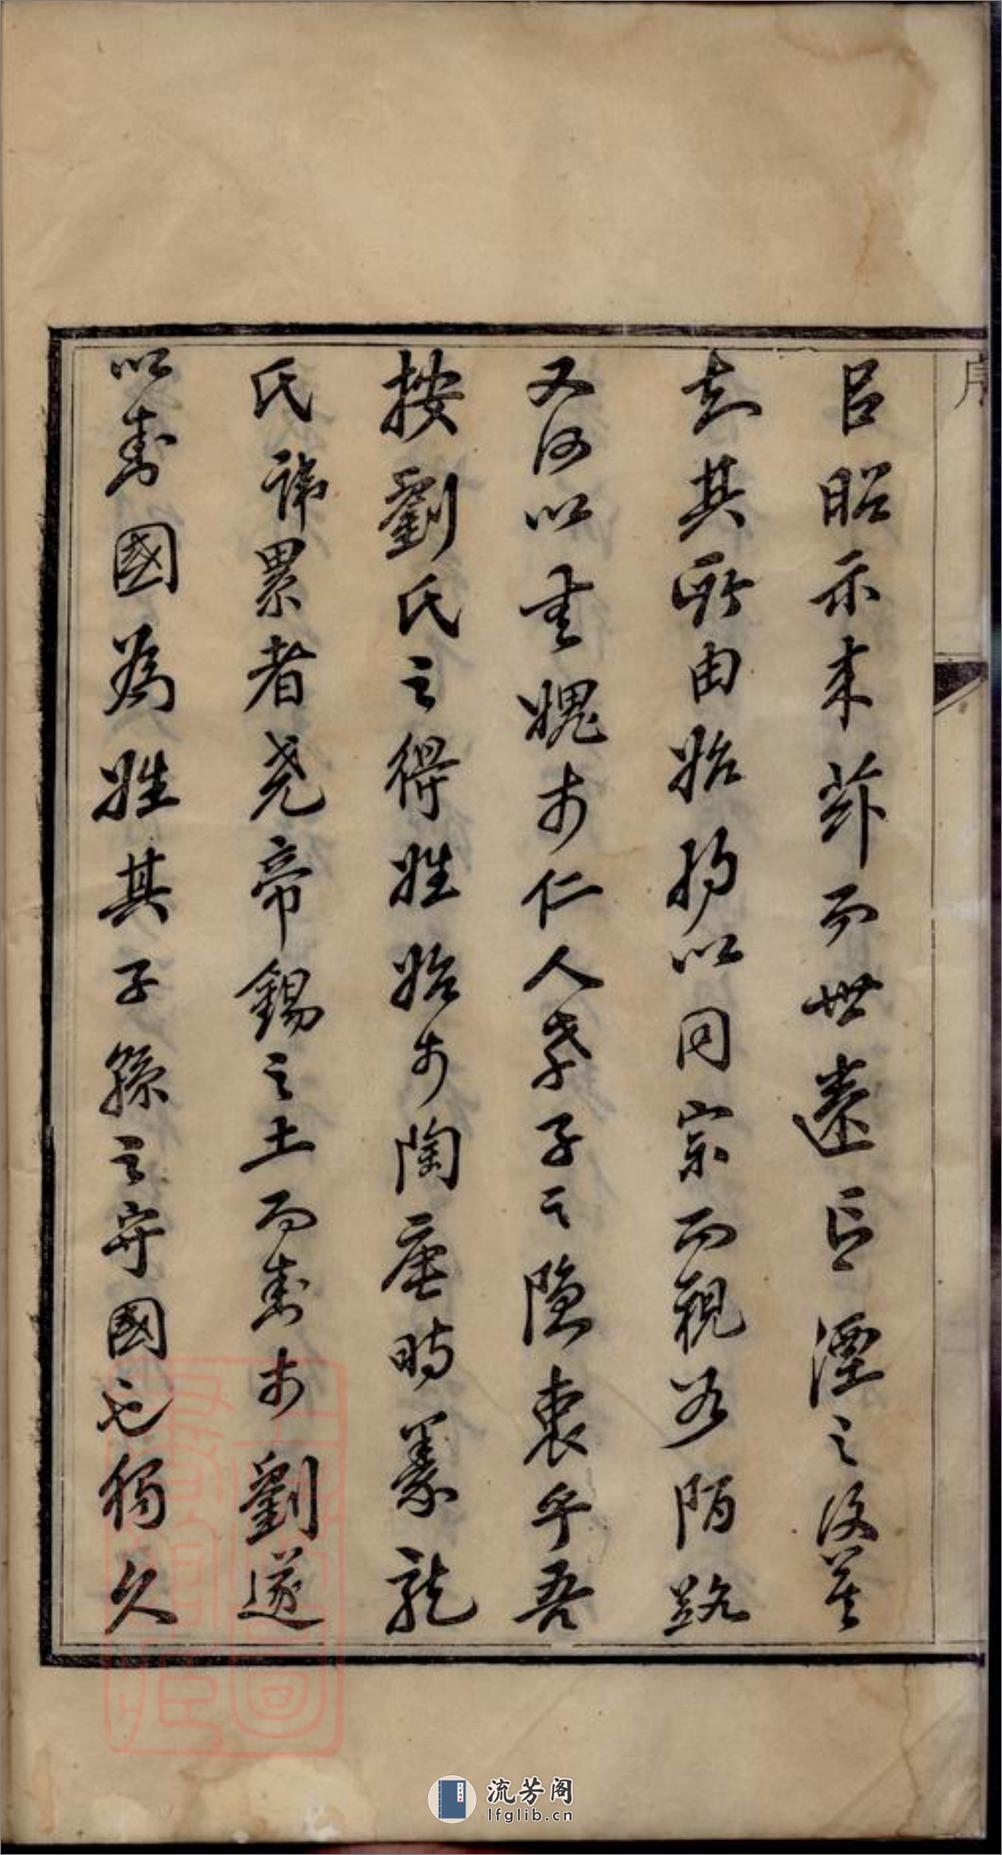 序
以昭示来茲而世遠言湮之後莫
知其所由始將以同宗而視若陌路
又何以無媿於仁人孝子之隱衷乎吾
按劉氏之得姓始於陶唐時豢龍
氏諱累者堯帝錫之土而封於劉遂
以封國為姓其子孫之守國也獨久
流芳阁
lfglib.cn